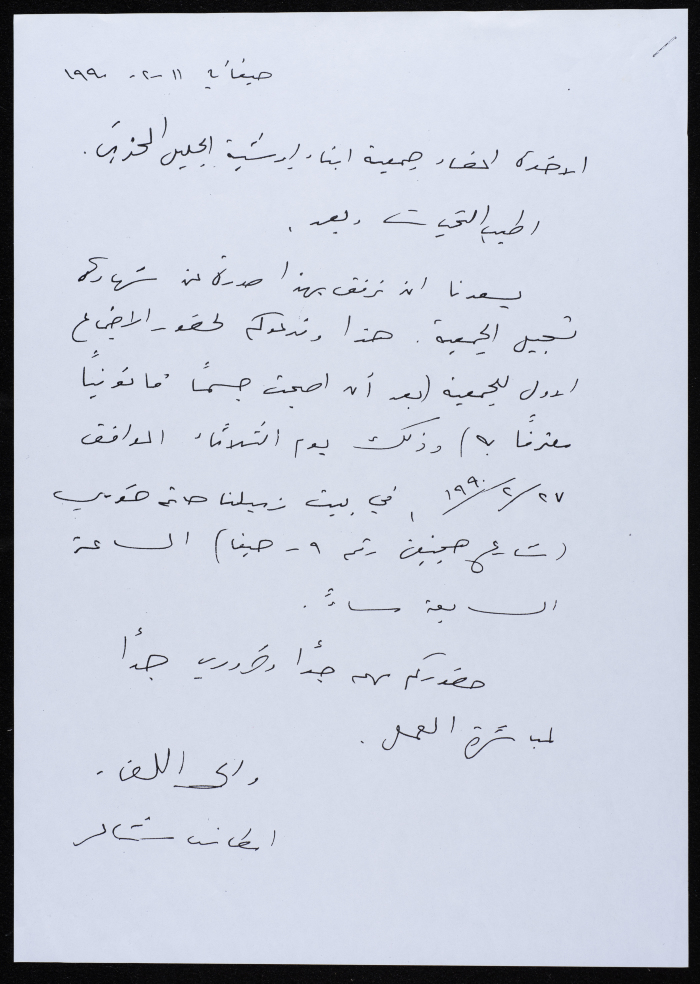 حيفا في ١١-٢-١٩٩٠
الاخوة اعضاء جمعية ابناء ابرشية الجليل المحترمين.
اطيب التحيات وبعد،
يسعدنا ان نرفق بهذا صورة عن شهادة
تسجيل الجمعية. هذا وندعوكم لحضور الاجتماع
الاول للجمعية (بعد أن اصبحت جسمًا قانونيًا
معترفًا به) وذلك يوم الثلاثاء الموافق
٢٧/٢/١٩٩٠، في بيت زميلنا حاتم خوري
(شارع رقم ٩ - حيفا) الساعة
السابعة مساءً.
حضوركم مهم جدًا وضروري جدًا
لمباشرة العمل.
والى اللقاء.
انطانس شناعر